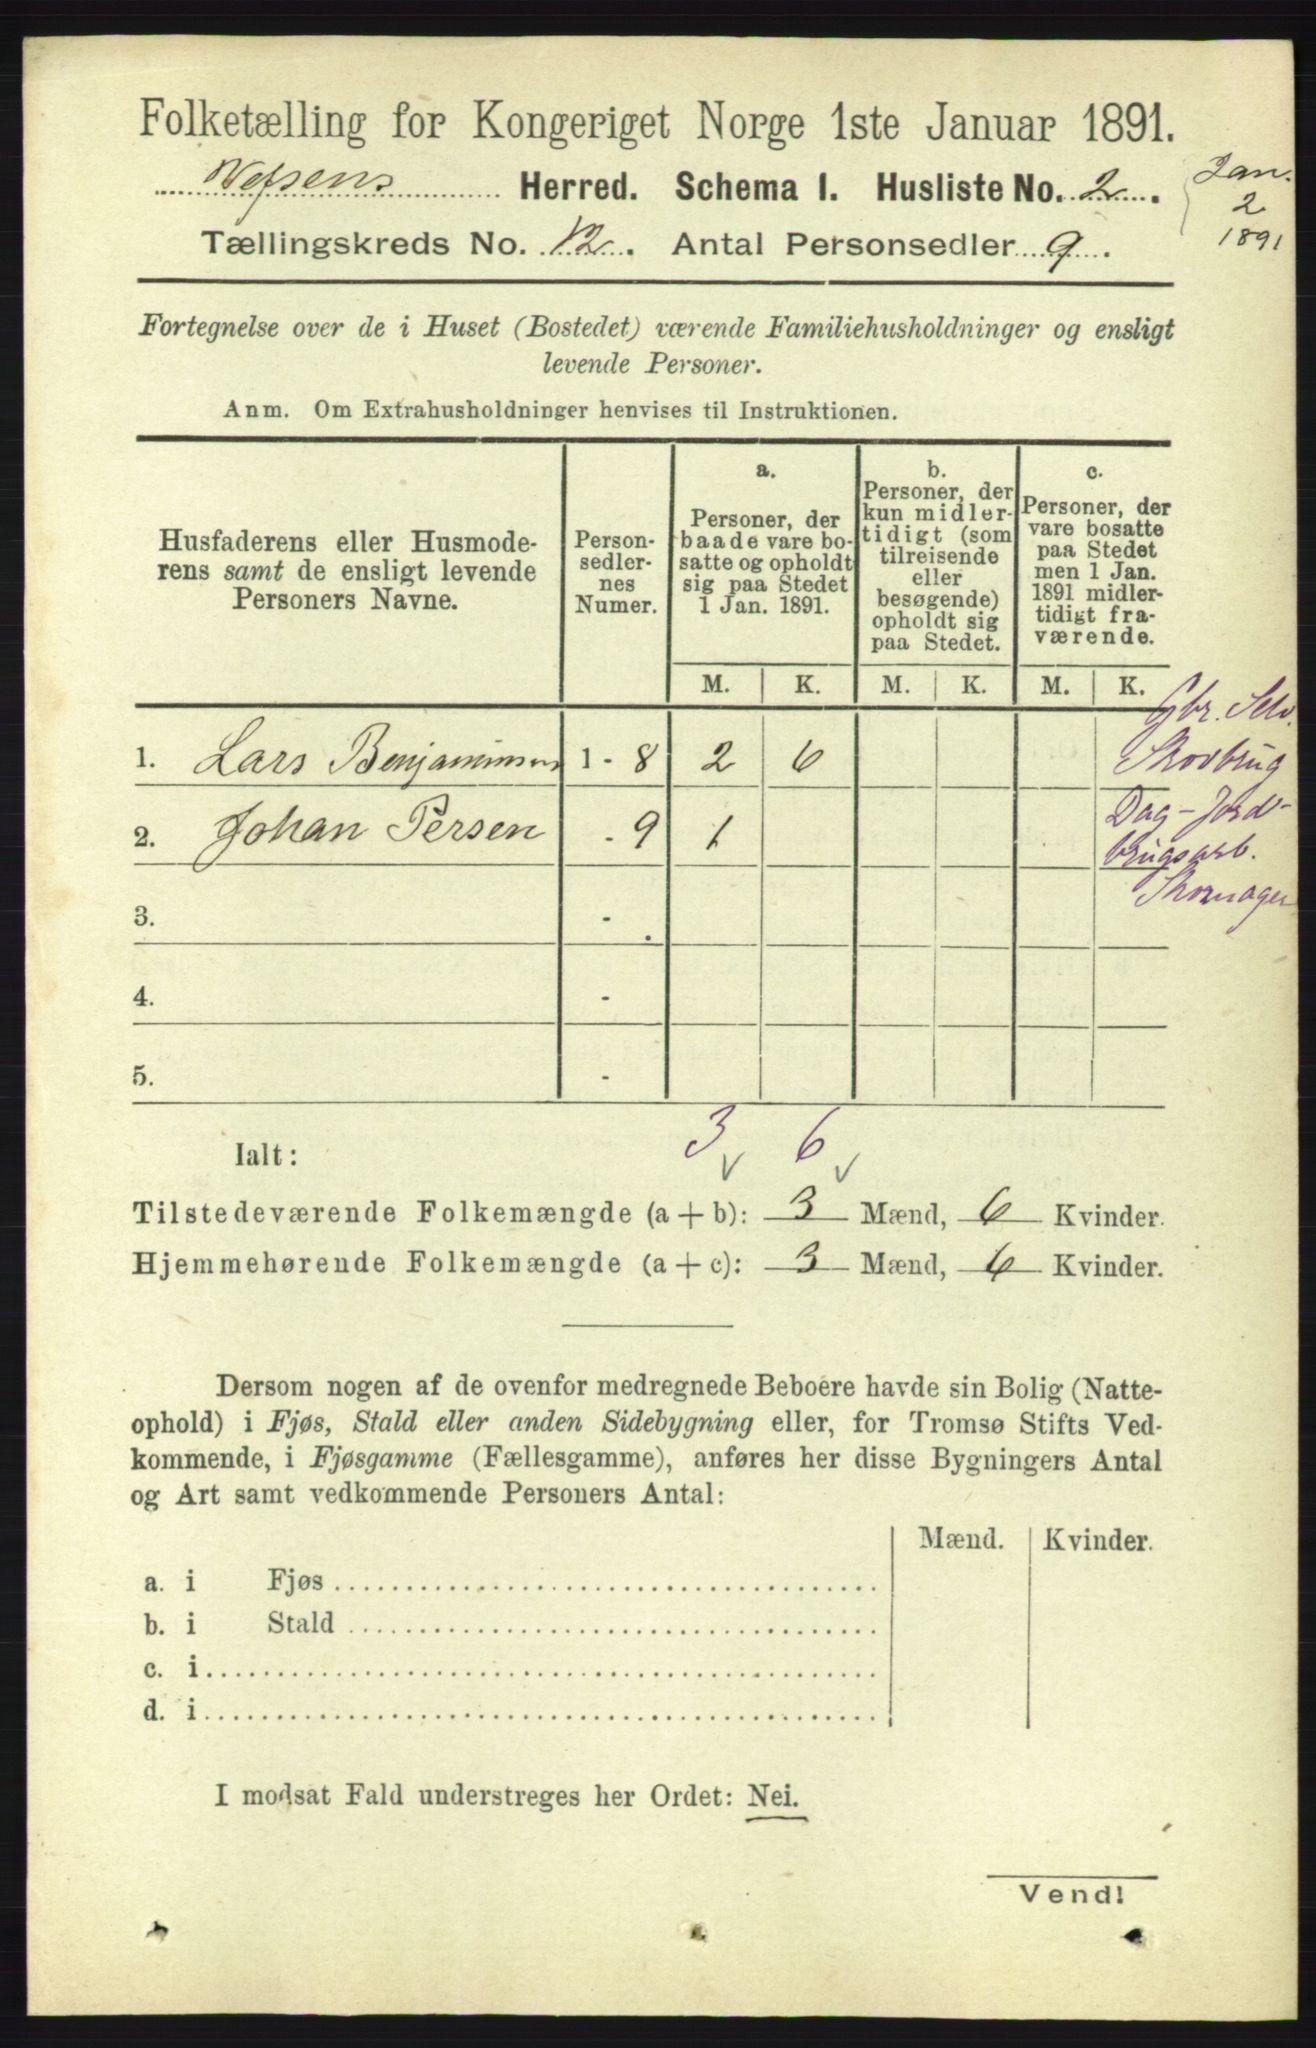 Folketælling for Kongeriget Norge 1ste Januar 1891.
Vefsens Herred. Schema I. Husliste No. 2.
Jan.
2
1891
Tællingskreds No. 12. Antal Personsedler 9.
Fortegnelse over de i Huset (Bostedet) værende Familiehusholdninger og ensligt
levende Personer.
Anm. Om Extrahusholdninger henvises til Instruktionen.
Husfaderens eller Husmode-
rens samt de ensligt levende
Personers Navne.
Person-
sedler-
nes
Numer.
a.
Personer, der
baade vare bo-
satte og opholdt
sig paa Stedet
1 Jan. 1891.
b.
Personer, der
kun midler-
tidigt (som
tilreisende
eller
besøgende)
opholdt sig
paa Stedet.
c.
Personer, der
vare bosatte
paa Stedet
men 1 Jan.
1891 midler-
tidigt fra-
værende.
M. K. M. K. M. K.
Gbr. Selv.
1. Lars Benjaminsen 1 - 8 2 6 Skovbrug
Dag-Jord-
2. Johan Persen - 9 1 brugsarb.
Skomager
3. -
4. -
5. -
3 6
Ialt:
Tilstedeværende Folkemængde (a + b): 3 Mænd, 6 Kvinder.
Hjemmehørende Folkemængde (a + c): 3 Mænd, 6 Kvinder.
Dersom nogen af de ovenfor medregnede Beboere havde sin Bolig (Natte-
ophold) i Fjøs, Stald eller anden Sidebygning eller, for Tromsø Stifts Ved-
kommende, i Fjøsgamme (Fællesgamme), anføres her disse Bygningers Antal
og Art samt vedkommende Personers Antal:
Mænd. Kvinder.
a. i Fjøs
b. i Stald
c. i
d. i
I modsat Fald understreges her Ordet: Nei.
Vend!